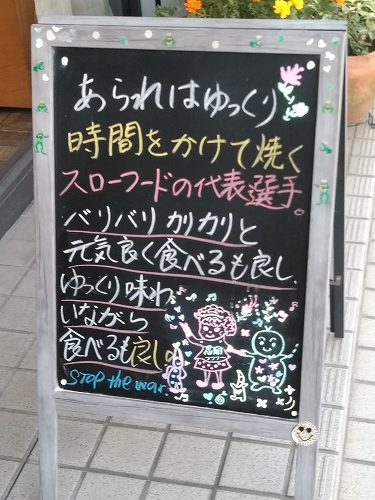 あられはゆっくり
時間をかけて焼く
スローフードの代表選手。
バリバリ カリカリと
元気良く食べるも良し、
ゆっくり味わ
いながら
食べるも良し。
STOP the war.